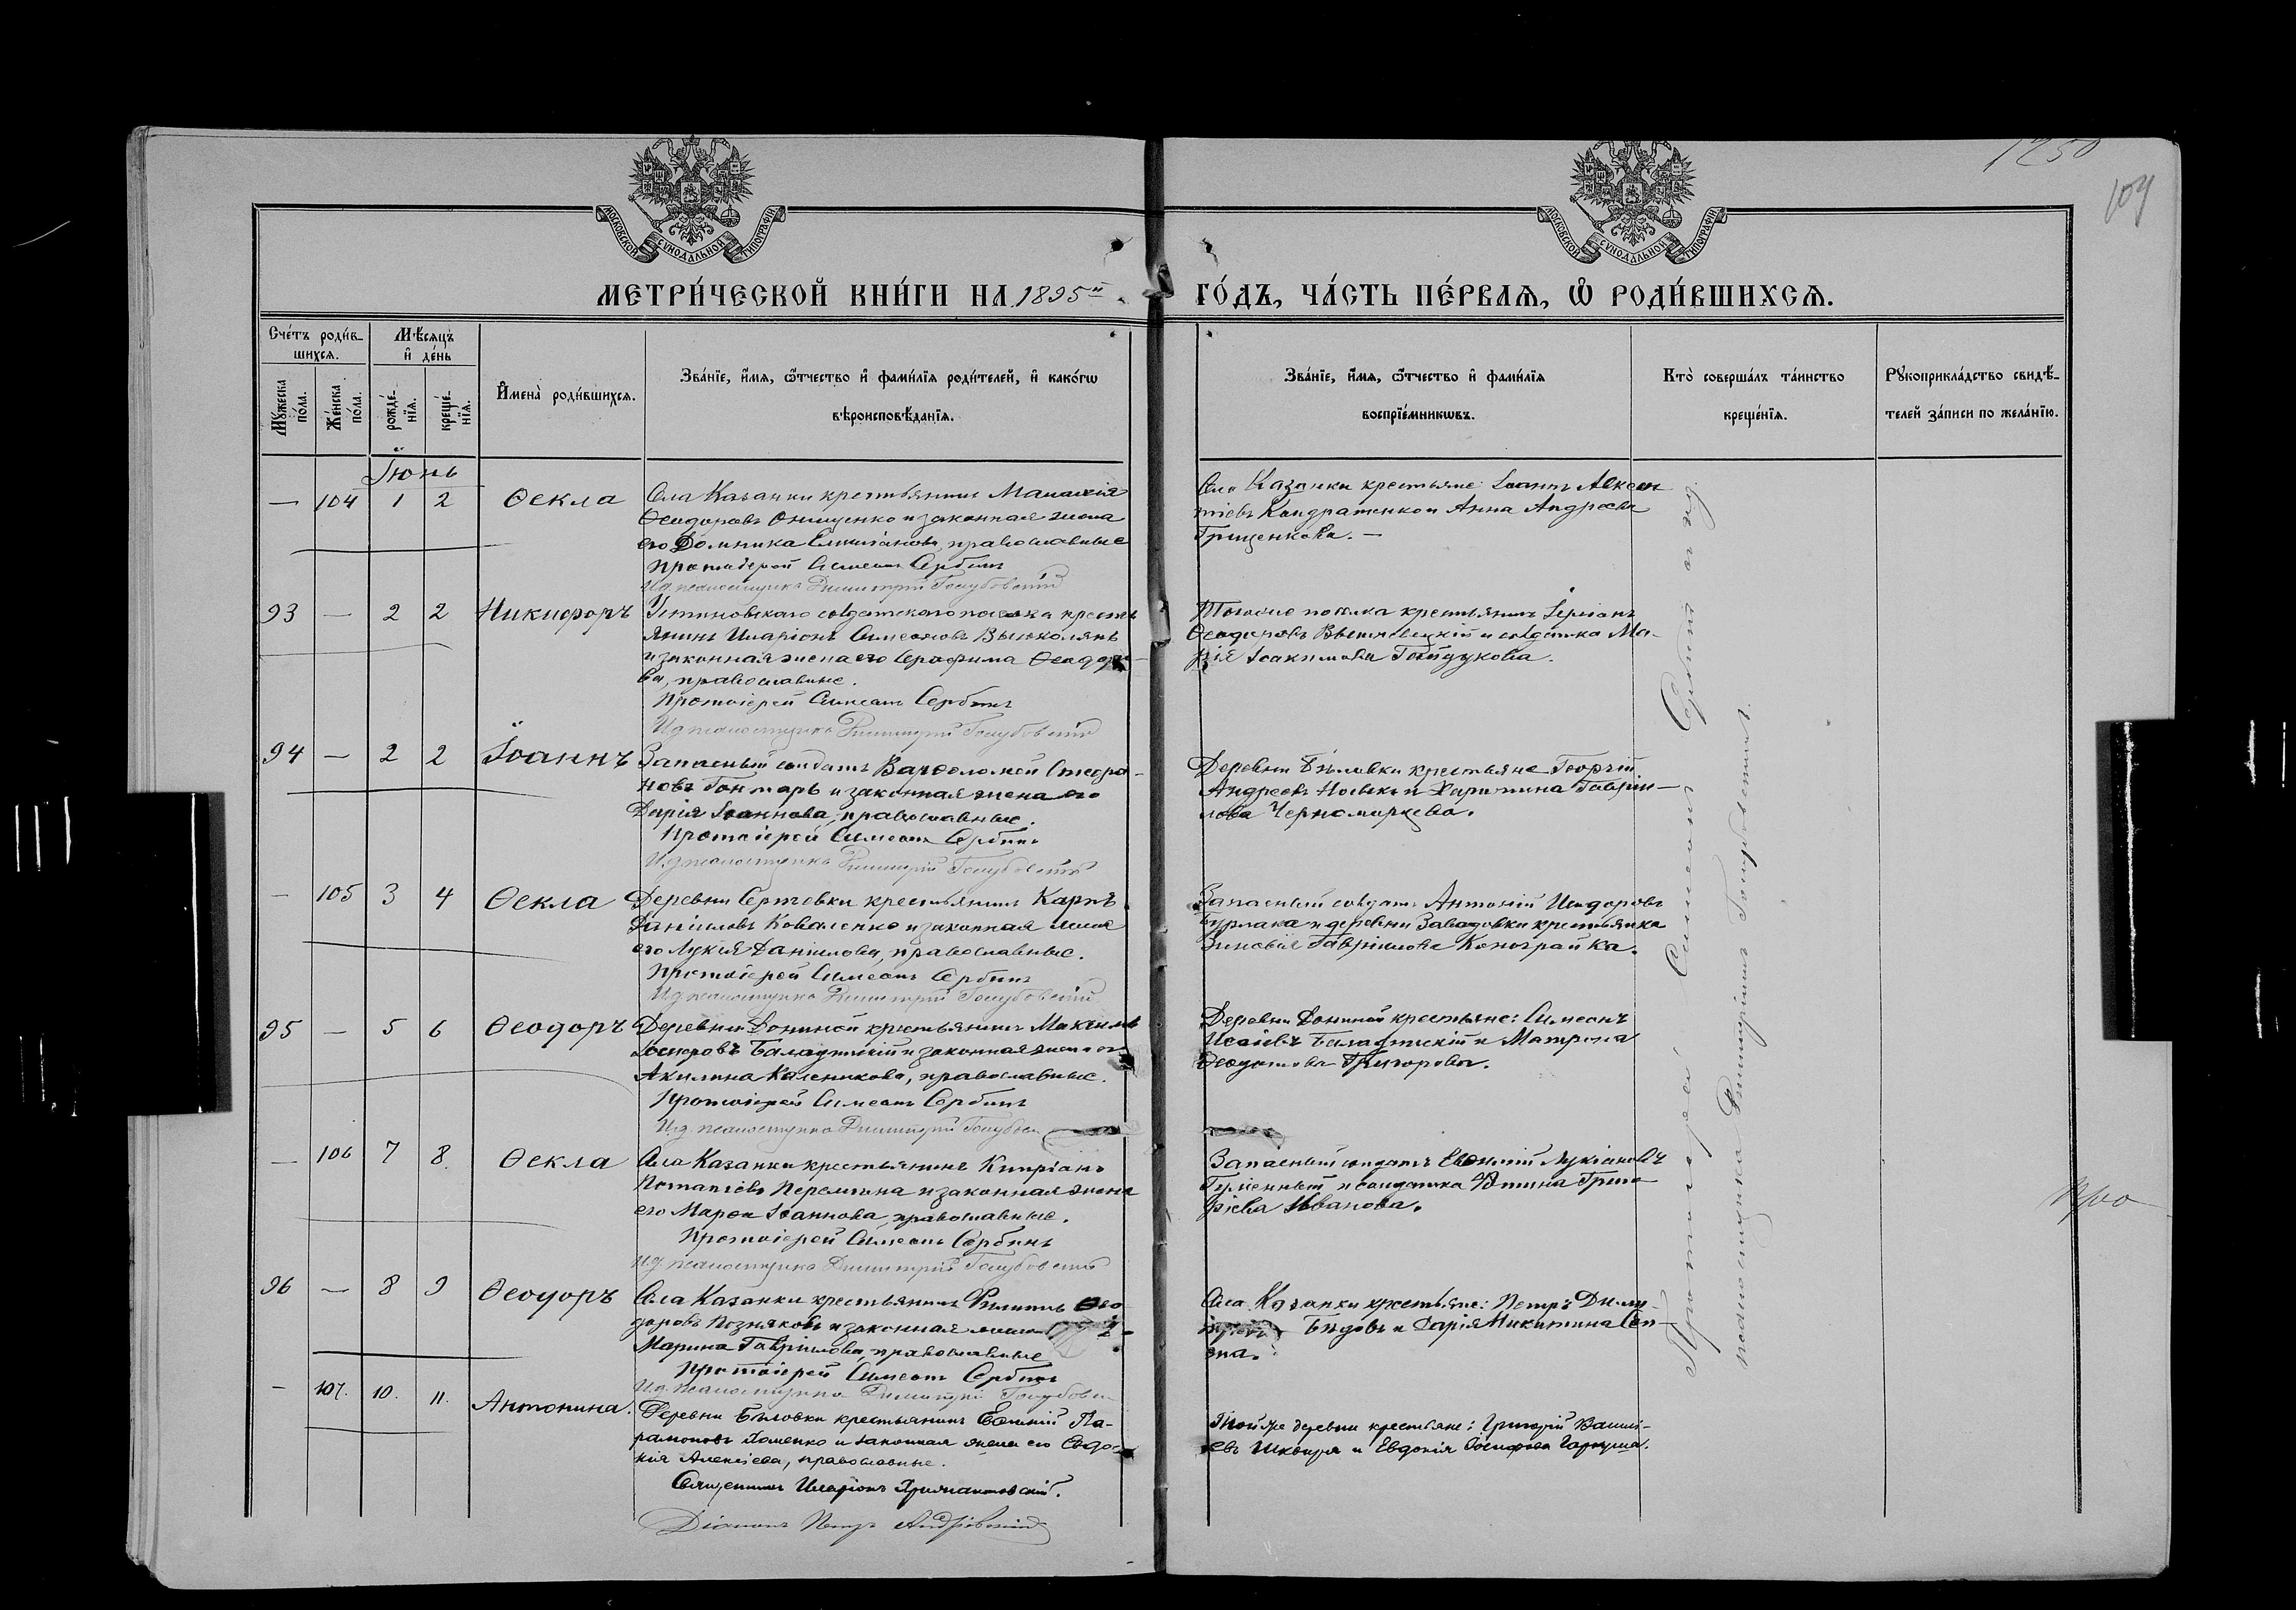 1250
109
МОСКОВСКОЙ СѴНОДАЛЬНОЙ ТИПОГРАФІИ
МОСКОВСКОЙ СѴНОДАЛЬНОЙ ТИПОГРАФІИ
МЕТРИ́ЧЕСКОЙ КНИ́ГИ НА 1895й
ГО́ДЪ, ЧА́СТЬ ПЕ́РВАЯ, Ѡ҆ РОДИ́ВШИХСЯ.
Сче́тъ роди́в-
шихся.
Мѣ́сяцъ
и҆ де́нь
Мꙋ́жеска по́ла.
Же́нска по́ла.
рожде́-
нїя.
креще́-
нїя.
И҆мена̀ роди́вшихся.
Зва́нїе, и҆́мя, ѻ҆́тчество и҆ фами́лїя роди́телей, и҆ како́гѡ
вѣроисповѣ́данїя.
Зва́нїе, и҆́мя, ѻ҆́тчество и҆ фами́лїя
воспрїе́мникѡвъ.
Кто̀ соверша́лъ та́инство
креще́нїя.
Рꙋкоприкла́дство свидѣ́-
телей за́писи по жела́нїю.
Іюнь
— 104 1 2 Ѳекла Села Казанки крестьянинъ
Ѳеодоровъ Онищенко и законная жена
его Домника православные
Протоіерей Симеонъ Сербинъ
И.д. псаломщика Димитрій Голубовскій
Села Казанки крестьяне: Іоаннъ Авксен
тіевъ Кондратенко и Анна Андреева
Грищенкова. —
93 — 2 2 Никифоръ Устиновскаго солдатскаго поселка кресть
янинъ Иларіонъ Симеоновъ
и законная жена его Серафима Ѳеодоро-
ва, православные.
Протоіерей Симеонъ Сербинъ
И.д. псаломщика Димитрій Голубовскій
Того же поселка крестьянинъ
Ѳеодоровъ и солдатка Ма-
рія Іоакимова Гайдукова.
94 — 2 2 Іоаннъ Запасный солдатъ Варѳоломей Стефа-
новъ Гончаръ и законная жена его
Дарія Іоаннова, православные.
Протоіерей Симеонъ Сербинъ
И.д. псаломщика Димитрій Голубовскій
Деревни Бѣловки крестьяне Георгій
Андреевъ и Харитина Гавріи-
лова Черноморцева.
— 105 3 4 Ѳекла Деревни Сергеевки крестьянинъ Карпъ
Даніиловъ Коваленко и законная жена
его Лукія Даніилова, православные.
Протоіерей Симеонъ Сербинъ
И.д. псаломщика Димитрій Голубовскій
Запасный солдатъ Антоній Исидоровъ
Бурлака и деревни Завадовки крестьянка
Зиновія Гавріилова Конограйка.
95 — 5 6 Ѳеодоръ Деревни Дониной крестьянинъ Максимъ
Іосифовъ и законная жена его
Акилина Каленикова, православные.
Протоіерей Симеонъ Сербинъ
И.д. псаломщика Димитрій Голубовск
Деревни Дониной крестьяне: Симеонъ
Исаіевъ и Матрона
Ѳеодотова Григорова.
— 106 7 8. Ѳекла Села Казанки крестьянинъ Кипріанъ
Потапіевъ и законная жена
его Марѳа Іоаннова, православные.
Протоіерей Симеонъ Сербинъ
И.д. псаломщика Димитрій Голубовскій
Запасный солдатъ Евѳимій Лукіановъ
и солдатка Григо
ріева Иванова.
96 — 8 9 Ѳеодоръ Села Казанки крестьянинъ Филиппъ Ѳео
доровъ Позняковъ и законная жена
Марина Гавріилова, православные
Протоіерей Симеонъ Сербинъ
И.д. псаломщика Димитрій Голубовск
Села Казанки крестьяне: Петръ Дими-
тріевъ Бѣдовъ и Дарія Никитина
— 107. 10. 11. Антонина. Деревни Бѣловки крестьянинъ Евѳимій Па-
рамоновъ Хоменко и законная жена его Евдо-
кія Алексіева, православные.
Священникъ Иларіонъ
Діаконъ Петръ Андріевскій
Той же деревни крестьяне: Григорій Васили-
евъ Шквиря и Евдокія Іосифова Гаркуша.
Протоіерей Симеонъ Сербинъ
псаломщика Димитріемъ Голубовскимъ.